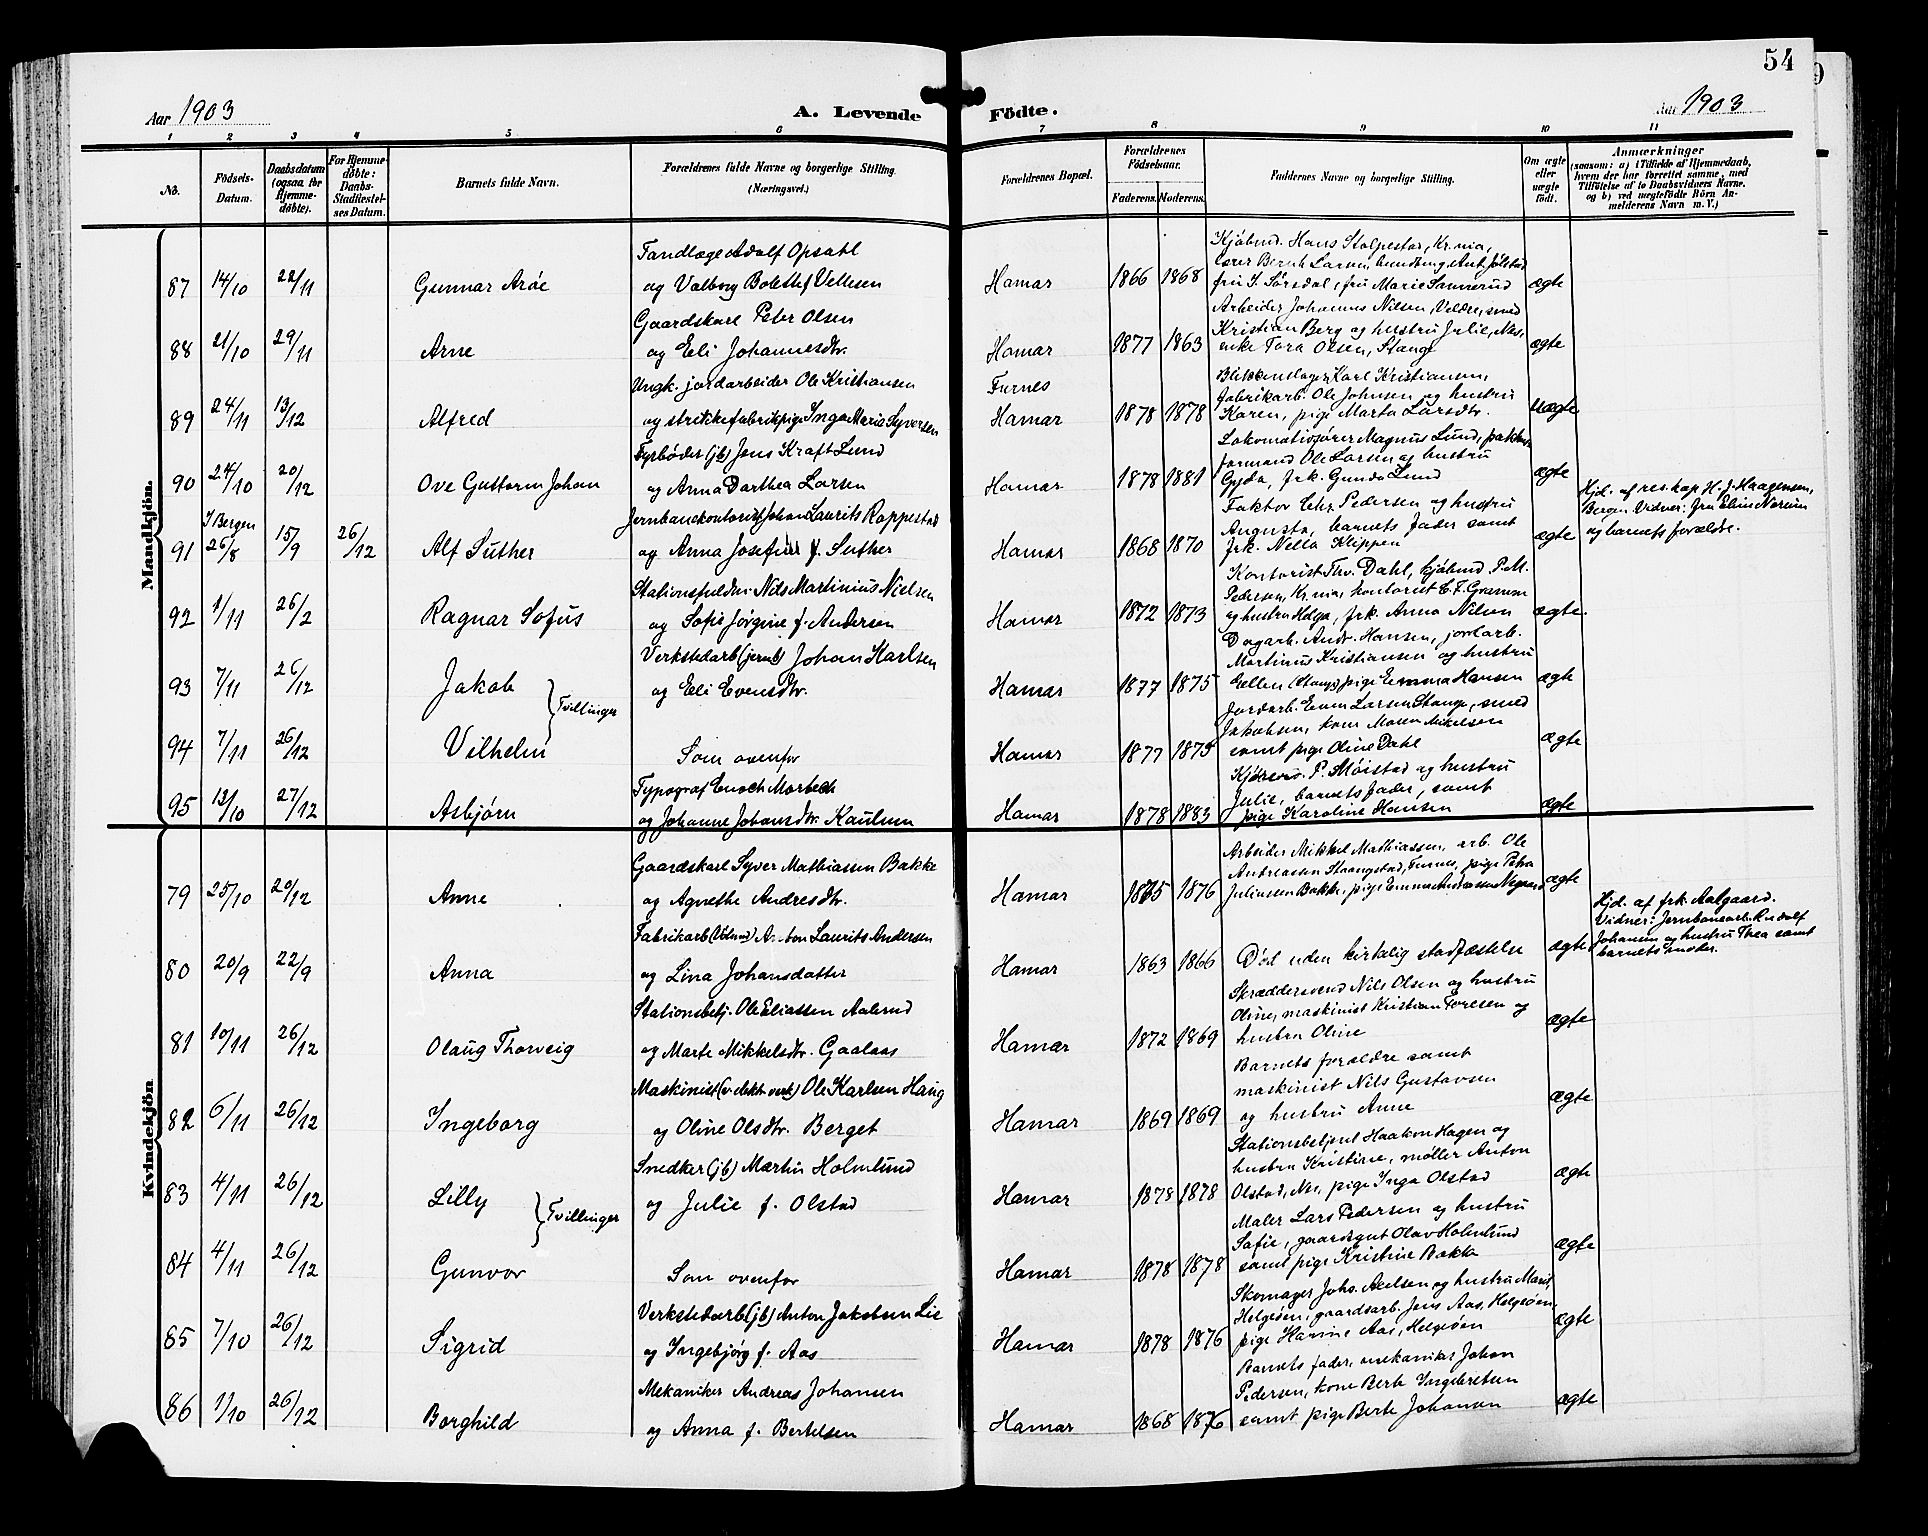 54
Aar 1903
A. Levende
Födte.
Aar 1903
1 2 3 4 5 6 7 8 9 10 11
No.
Födsels-
Datum.
Daabsdatum
(ogsaa for
Hjemme-
döbte).
For Hjemme-
döbte:
Daabs-
Stadfæstel-
ses Datum.
Barnets fulde Navn.
Forældrenes fulde Navne og borgerlige Stilling.
(Næringsvei.)
Forældrenes Bopæl.
Forældrenes
Födselsaar.
Faderens. Moderens.
Faddernes Navne og borgerlige Stilling.
Om ægte
eller
uægte
födt.
Anmærkninger
(saasom: a) i Tilfælde af Hjemmedaab,
hvem der har forrettet samme, med
Tilföielse af to Daabsvidners Navne,
og b) ved uægtefödte Börn An-
melderens Navn m. V.)
Mandkjön.
Tandlæge Adolf Opsahl
87 14/10 22/11 Gunnar Arøe og Valborg Bolette f. Vellesen Hamar 1866 1868 ægte
Kjøbmd. Hans Stolpestad, Kr.nia,
frü S. Sørsdal, frü Marie Sannerud
Gaardskarl Peter Olsen
88 21/10 29/11 Arne og Eli Johannesdtr. Hamar 1877 1863 ægte
Arbeider Johannes Nilsen, Veldre, smed
Kristian Berg og hustrü Julie, Næs,
enke Tora Olsen, Stange
Ungk. jordarbeider Ole Kristiansen Furnes
89 24/11 13/12 Alfred og strikkefabrikpige Inga Maria Syversen Hamar 1878 1878 uægte
Blikkenslager Karl Kristiansen,
fabrikarb. Ole Johnsen og hustrü
Karen, pige Marta Larsdtr.
Fyrbøder (jb) Jens Kraft Lund
90 24/10 20/12 Ove Guttorm Johan og Anna Dorthea Larsen Hamar 1878 1881 ægte
Lokomotivfører Magnus Lund, pakhus-
formand Ole Larsen og hustrü
Gyda, frk. Gunda Lund
I Bergen
Jernbanekontorist Johan Laurits Rappestad
91 26/8 15/9 26/12 Alf Suther og Anna Josefine f. Suther Hamar 1868 1870 ægte
Faktor Chr. Pedersen og hustrü
Augusta, barnets fader samt
frk. Nella Klippen
Hjd. af res. kap. H. J. Haagensen,
Bergen. Vidner: fru Elin Norium
og barnets forældre.
Stationsfuldm. Nils Martinius Nielsen
92 1/11 26/2 Ragnar Sofus og Sofie Jørgine f. Andersen Hamar 1872 1873 ægte.
Kontorist Thv. Dahl, kjøbmd P. M.
Pedersen, Kr.nia, kontorist C. F. Gramm
og hustru Helga, frk. Anna Nilsen
Verkstedarb (jernb) Johan Karlsen
93 7/11 26/12 Jakob og Eli Evensdtr. Hamar 1877 1875 ægte
Dagarb. Andr. Hansen, jordarb.
Martinus Kristiansen og hustrü
Ellen (Stange) pige Emma Hansen
Tvillinger
94 7/11 26/12 Vilhelm Som ovenfor Hamar 1877 1875 ægte
Jordarb. Even Larsen Stange, smed
Jakobsen, kone Maren Mikelsen
samt pige Oline Dahl
Typograf Enoch Morbech
95 13/10 27/12 Asbjørn og Johanne Johansdtr. Kaulum Hamar 1878 1883 ægte
P. Møistad og hustrü
Julie, barnets fader, samt
pige Karoline Hansen
Kvindekjön
Gaardskarl Syver Mathiassen Bakke
79 25/10 20/12 Anne og Agnethe Andresdtr. Hamar 1865 1876 ægte
Arbeider Mikkel Mathiassen, arb. Ole
Andreassen Staangstad, Furnes, pige Petra
Juliussen Bakke, pige Emma Andreassen
Fabrikarb Anton Laurits Andersen
80 20/9 22/9 Anna og Lina Johansdatter Hamar 1863 1866 Død uden kirkelig stadfæstelse ægte
Hjd. af frk. Aalgaard.
Vidner: Jernbanearb. Rudolf
Johansen og hustru Thea samt
barnets moder.
Stationsbetj. Ole Eliassen Aalerud
81 10/11 26/12 Olaug Thorveig og Marte Mikkelsdtr. Gaalaas Hamar 1872 1869 ægte
Skræddersvend Nils Olsen og hustrü
Oline, maskinist Kristian Toresen og
hustru Oline
Maskinist (v. elekt. verk) Ole Karlsen Haug
82 6/11 26/12 Ingeborg og Oline Olsdtr. Berget Hamar 1869 1869 ægte
Barnets forældre samt
maskinist Nils Gustavsen
og hustru Anne
Snedker (jb) Martin Holmlund
83 4/11 26/12 Lilly og Julie f. Olstad Hamar 1878 1878 ægte
Stationsbetjent Haakon Hagen og
hustru Kristine, møller Anton
Olstad, Næs, pige Inga Olstad
Tvillinger
84 4/11 26/12 Gunvor Som ovenfor Hamar 1878 1878 ægte
Maler Lars Pedersen og hustru
Sofie, gaardsgut Olav Holmlund
samt pige Kristine Bakke
Verkstedarb (jb) Anton Jakobsen Lie
85 7/10 26/12 Sigrid og Ingebjørg f. Aas Hamar 1878 1876 ægte
Skomager Johs. Axelsen og hustru Marie,
Helgøen, gaardsarb. Jens Aas, Helgøen,
pige Hanine Aas, Helgøen
Mekaniker Andreas Johansen
86 1/10 26/12 Borghild og Anna f. Bertelsen Hamar 1868 1876 ægte
Barnets fader, mekaniker Johan
Pedersen, kone Berte Ingebretsen
samt pige Berte Johansen